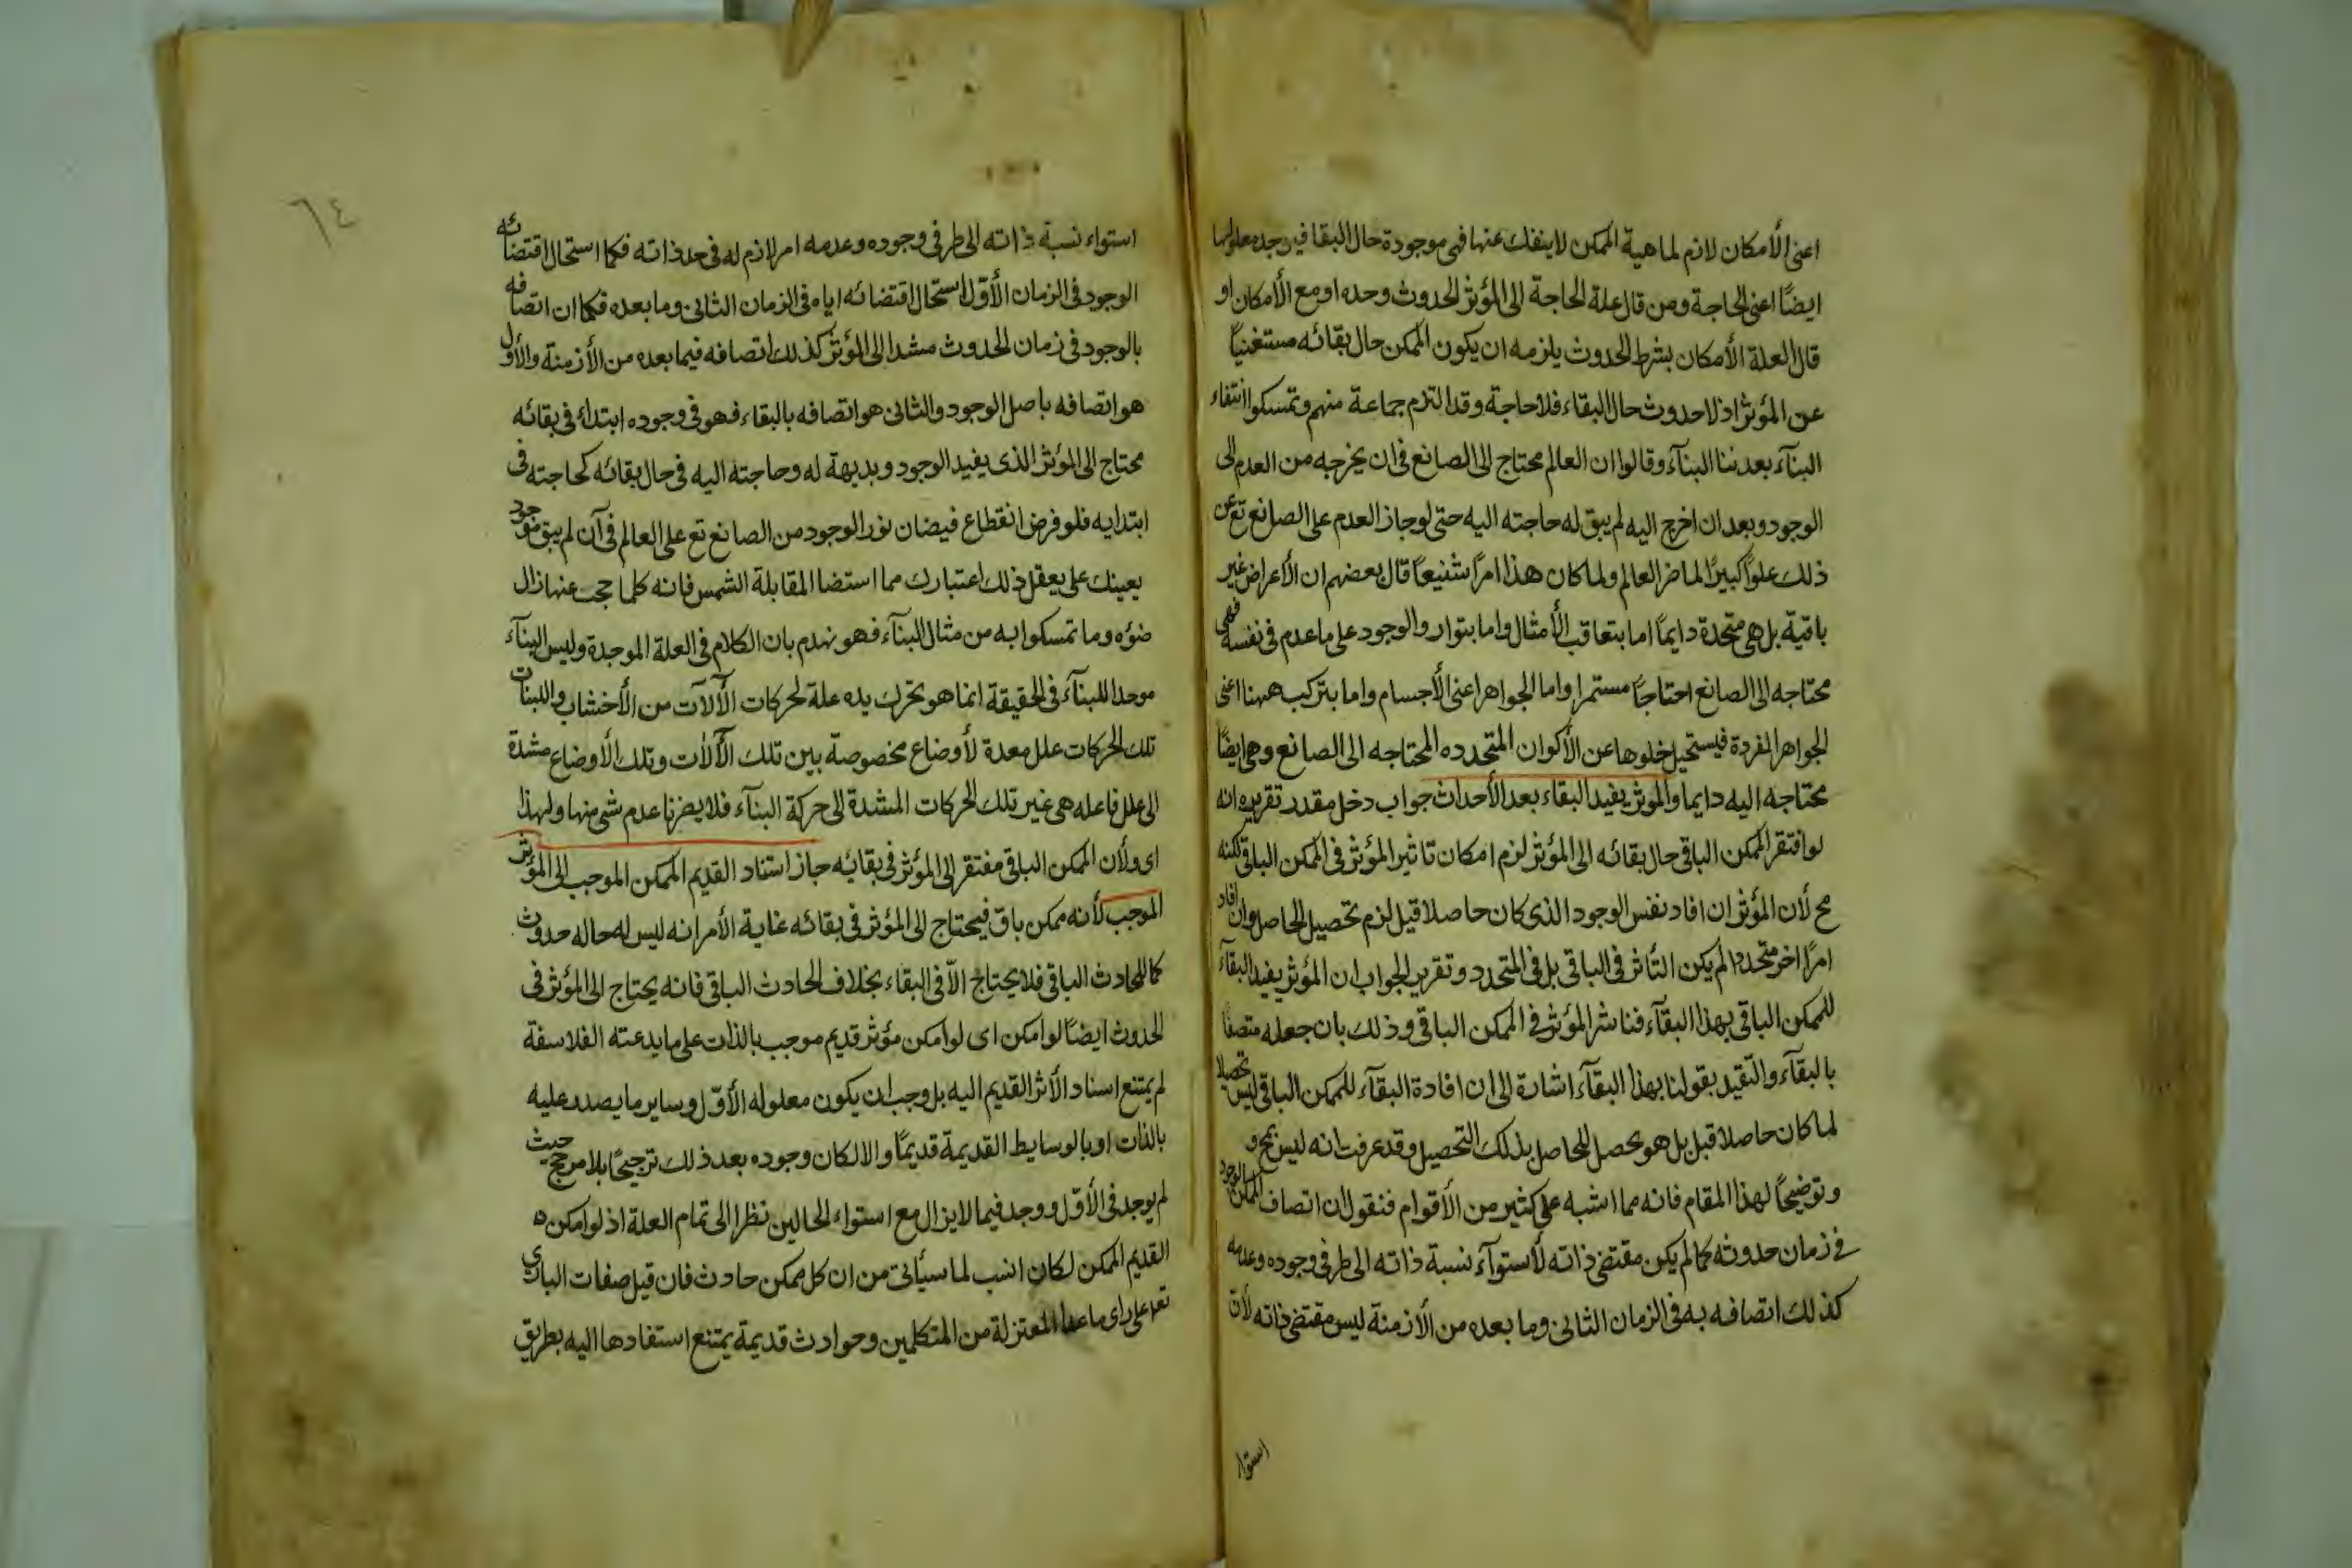 اعنى الأمكان لازم لماهية الممكن لا ينفك عنها فهى موجودة حال البقا فيوجد معلولها
ايضًا اعنى الحاجة ومن قال علة الحاجة الى المؤثر الحدوث وحده او مع الأمكان او
قال العلة الأمكان بشرط الحدوث يلزمه ان يكون الممكن حال بقائه مستغنيًا
عن المؤثر اذ لا حدوث حال البقاء فلا حاجة وقد التزم جماعة منهم وتمسكوا انتفاء
البنآء بعد بنا البنآء وقالوا ان العالم محتاج الى الصانع فى ان يخرجه من العدم الى
الوجود وبعد ان اخرج اليه لم يبق له حاجته اليه حتى لو جاز العدم على الصانع تع عن
ذلك علوًا كبيرًا لما ضر العالم ولما كان هذا امرًا شنيعًا قال بعضهم ان الأعراض غير
باقية بل هى متجددة دايمًا اما بتعاقب الأمثال واما بتوارد الوجود على ما عدم فى نفسه فهى
محتاجه الى الصانع احتاجًا مستمرا واما الجواهر اعنى الأجسام واما بتركب ههنا اعنى
الجواهر المفردة فيستحيل خلوها عن الأكوان المتجدده المحتاجه الى الصانع وهى ايضًا
محتاجه اليه دايما والموثر يفيد البقاء بعد الأحداث جواب دخل مقدر تقريره انه
لو افتقر الممكن الباقى حال بقائه الى المؤثر لزم امكان تاثير المؤثر فى الممكن الباقى لكنه
مح لأن المؤثر ان افاد نفس الوجود الذى كان حاصلا قبل لزم تحصيل الحاصل وان افاد
امرًا اخر متجددا لم يكن التأثر فى الباقى بل فى المتجدد وتقرير الجواب ان المؤثر يفيد البقآء
للممكن الباقى بهذا البقآء فتاشر المؤثر فى الممكن الباقى وذلك بان جعله متصفًا
بالبقآء والتقيد بقولنا بهذا البقآء اشارة الى ان افادة البقآء للممكن الباقى ليس تحصيلا
لما كان حاصلا قبل بل هو تحصل للحاصل بذلك التحصيل وقد عرفت انه ليس بمح و
وتوضيحًا لهذا المقام فانه مما اشبه على كثير من الأقوام فنقول ان اتصاف الممكن بالوجود
فى زمان حدوثه كما لم يكن مقتضى ذاته لأستوآء نسبة ذاته الى طرفى وجوده وعدمه
كذلك اتصافه به فى الزمان الثانى وما بعده من الأزمنة ليس مقتضى ذاته لان
استوا
٦٤
استواء نسبة ذاته الى طرفى وجوده وعدمه امر لازم له فى حد ذاته فكما استحال اقتضائه
الوجود فى الزمان الأوّل استحال اقتضائه اياه فى الزمان الثانى وما بعده فكما ان اتصافه
بالوجود فى زمان الحدوث مشدا الى المؤثر كذلك اتصافه فيما بعده من الأزمنة والأول
هو اتصافه باصل الوجود والثانى هو اتصافه بالبقاء فهو فى وجوده ابتداءً فى بقائه
محتاج الى المؤثر الذى يفيد الوجود وبديهة له وحاجته اليه فى حال بقائه كحاجته فى
ابتدايه فلو فرض انقطاع فيضان نور الوجود من الصانع تع على العالم فى آن لم يبق موجود
يعينك على يعقل ذلك اعتبارك مما استضا المقابلة الشمس فانه كلما حجب عنها زال
ضؤه وما تمسكوا به من مثال البنآء فهو نهدم بان الكلام فى العلة الموجدة وليس البنآء
موحدا للبنآء فى الحقيقة انما هو بتحرك يده علة لحركات الآلات من الأخشاب واللبنات
تلك الحركات علل معدة لأوضاع مخصوصة بين تلك الآلات وتلك الأوضاع مشدة
الى علل فاعله هى غير تلك الحركات المشدة الى حركة البنآء فلا يضرنا عدم شى منها ولهذا
اى ولأن الممكن الباقى مفتقر الى المؤثر فى بقايه جاز استناد القديم الممكن الموجب الى المؤثر
الموجب لأنه ممكن باق فيحتاج الى المؤثر فى بقائه غاية الأمر انه ليس له حاله حدوث
كما للحادث الباقى فلا يحتاج الاّ فى البقاء بخلاف الحادث الباقى فانه يحتاج الى المؤثر فى
الحدوث ايضًا لو امكن اى لو امكن مؤثر قديم موجب بالذات على ما يدعته الفلاسفة
لم يمتنع اسناد الأثر القديم اليه بل وجب ان يكون معلوله الأوّل وساير ما يصدر عليه
بالذات او بالوسايط القديمة قديمًا والا لكان وجوده بعد ذلك ترجيحًا بلا مرجح حيث
لم يوجد فى الأوّل ووجد فيما لا يزال مع استواء الحالين نظرا الى تمام العلة اذ لو امكن ه
القديم الممكن لكان انسب لما سيأتى من ان كل ممكن حادث فان قيل صفات البارى
تعر على راى ما عدا المعتزلة من المتكلمين وحوادث قديمة يمتنع استفادها اليه بطريق